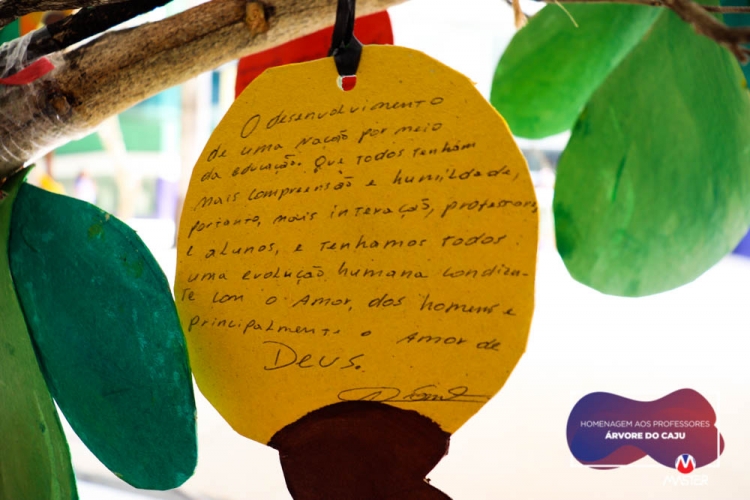 O desenvolvimento
de uma Nação por meio
da educação. Que todos tenham
mais compreensão e humildade,
portanto, mais interação, professores
e alunos, e tenhamos todos
uma evolução humana condizen-
te com o Amor, dos homens e
principalmente o Amor de
Deus.
HOMENAGEM AOS PROFESSORES
ÁRVORE DO CAJU
MASTER